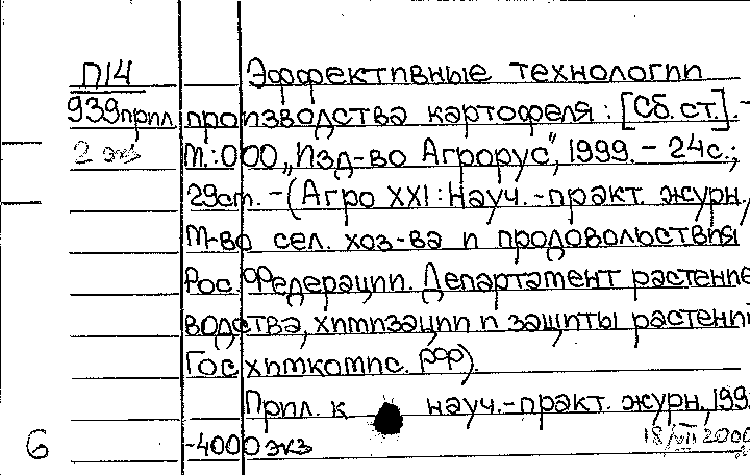 П14 Эффективные технологии
939прил производства картофеля: [Сб. ст.]. -
2 экз М.: ООО „Изд-во Агрорус", 1999. - 24с.;
29ст. - (Агро XXI: Науч.-практ. журн./
М-во сел. хоз-ва и продовольствия
Рос. Федерации. Департамент растение
водства, химизации и защиты растений
Госхимкомис. РФ).
Прил. к науч.-практ. журн., 199
6 -4000 экз 18/VII 2000